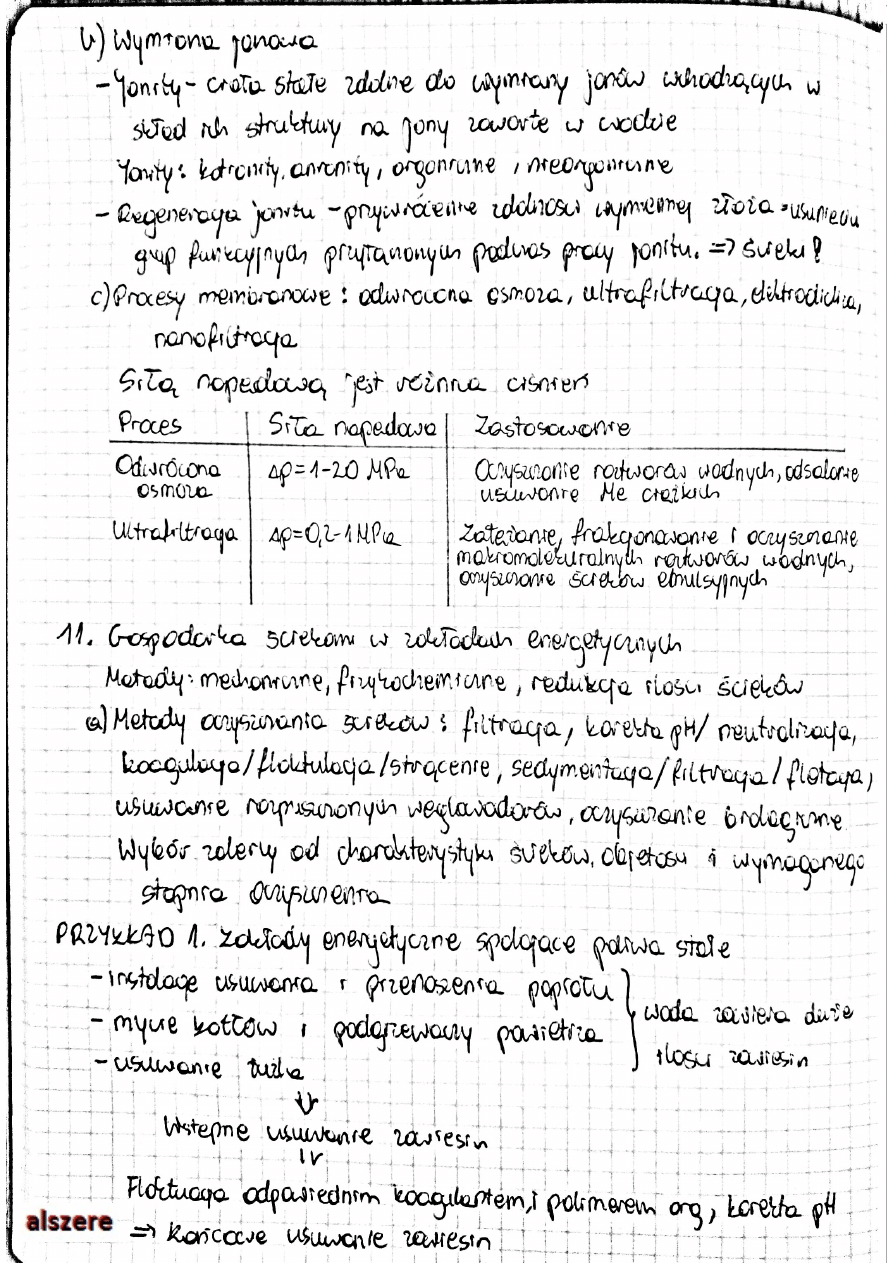 b) Wymiana jonowa
- Jonity - ciała stałe zdolne do wymiany jonów wchodzących w
skład ich struktury na jony zawarte w wodzie
Jonity: kationity, anionity, organiczne, nieorganiczne
- Regeneracja jonitu - przywrócenie zdolności wymiennej złoża = usunięciu
grup funkcyjnych przyłączonych podczas pracy jonitu. => ścieki!
c) Procesy membranowe: odwrócona osmoza, ultrafiltracja, elektrodializa,
nanofiltracja
Siłą napędową jest różnica ciśnień
Proces | Siła napędowa | Zastosowanie
Odwrócona osmoza | Δp=1-20 MPa | Oczyszczanie roztworów wodnych, odsalanie
usuwanie Me ciężkich
Ultrafiltracja | Δp=0,2-1 MPa | Zatężanie, frakcjonowanie i oczyszczanie
makromolekularnych roztworów wodnych,
oczyszczanie ścieków emulsyjnych
11. Gospodarka ściekami w zakładach energetycznych
Metody: mechaniczne, fizykochemiczne, redukcja ilości ścieków
a) Metody oczyszczania ścieków: filtracja, korekta pH/ neutralizacja,
koagulacja/flokulacja/strącenie, sedymentacja/filtracja/flotacja,
usuwanie rozpuszczonych węglowodorów, oczyszczanie biologiczne
Wybór zależny od charakterystyki ścieków, objętości i wymaganego
stopnia oczyszczenia
PRZYKŁAD 1. Zakłady energetyczne spalające paliwa stałe
- instalacje usuwania i przenoszenia popiołu
- mycie kotłów i podgrzewaczy powietrza
- usuwanie żużla
woda zawiera duże
ilości zawiesin
Wstępne usuwanie zawiesin
Floktuacja odpowiednim koagulantem, i polimerem org, korekta pH
=> Końcowe usuwanie zawiesin
alszere